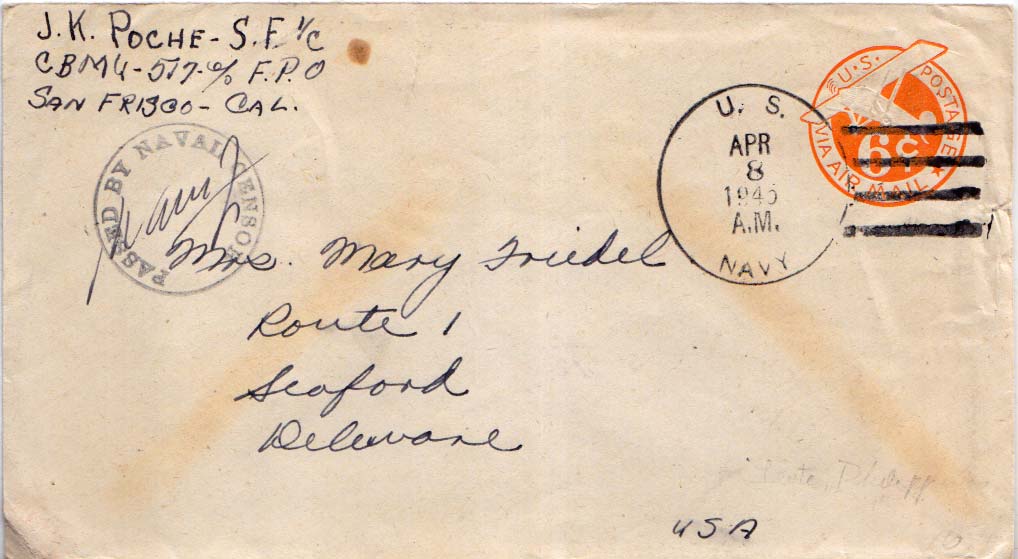 J.K. POCHE - S.F. 1/c
CBMU-517-c/o F.P.O
SAN FRISCO - CAL.
PASSED BY NAVAL CENSOR
U. S.
APR
8
1945
A.M.
NAVY
U.S. POSTAGE
6¢
VIA AIR MAIL
Mrs. Mary Friedel
Route 1
Seaford
Deleware
USA